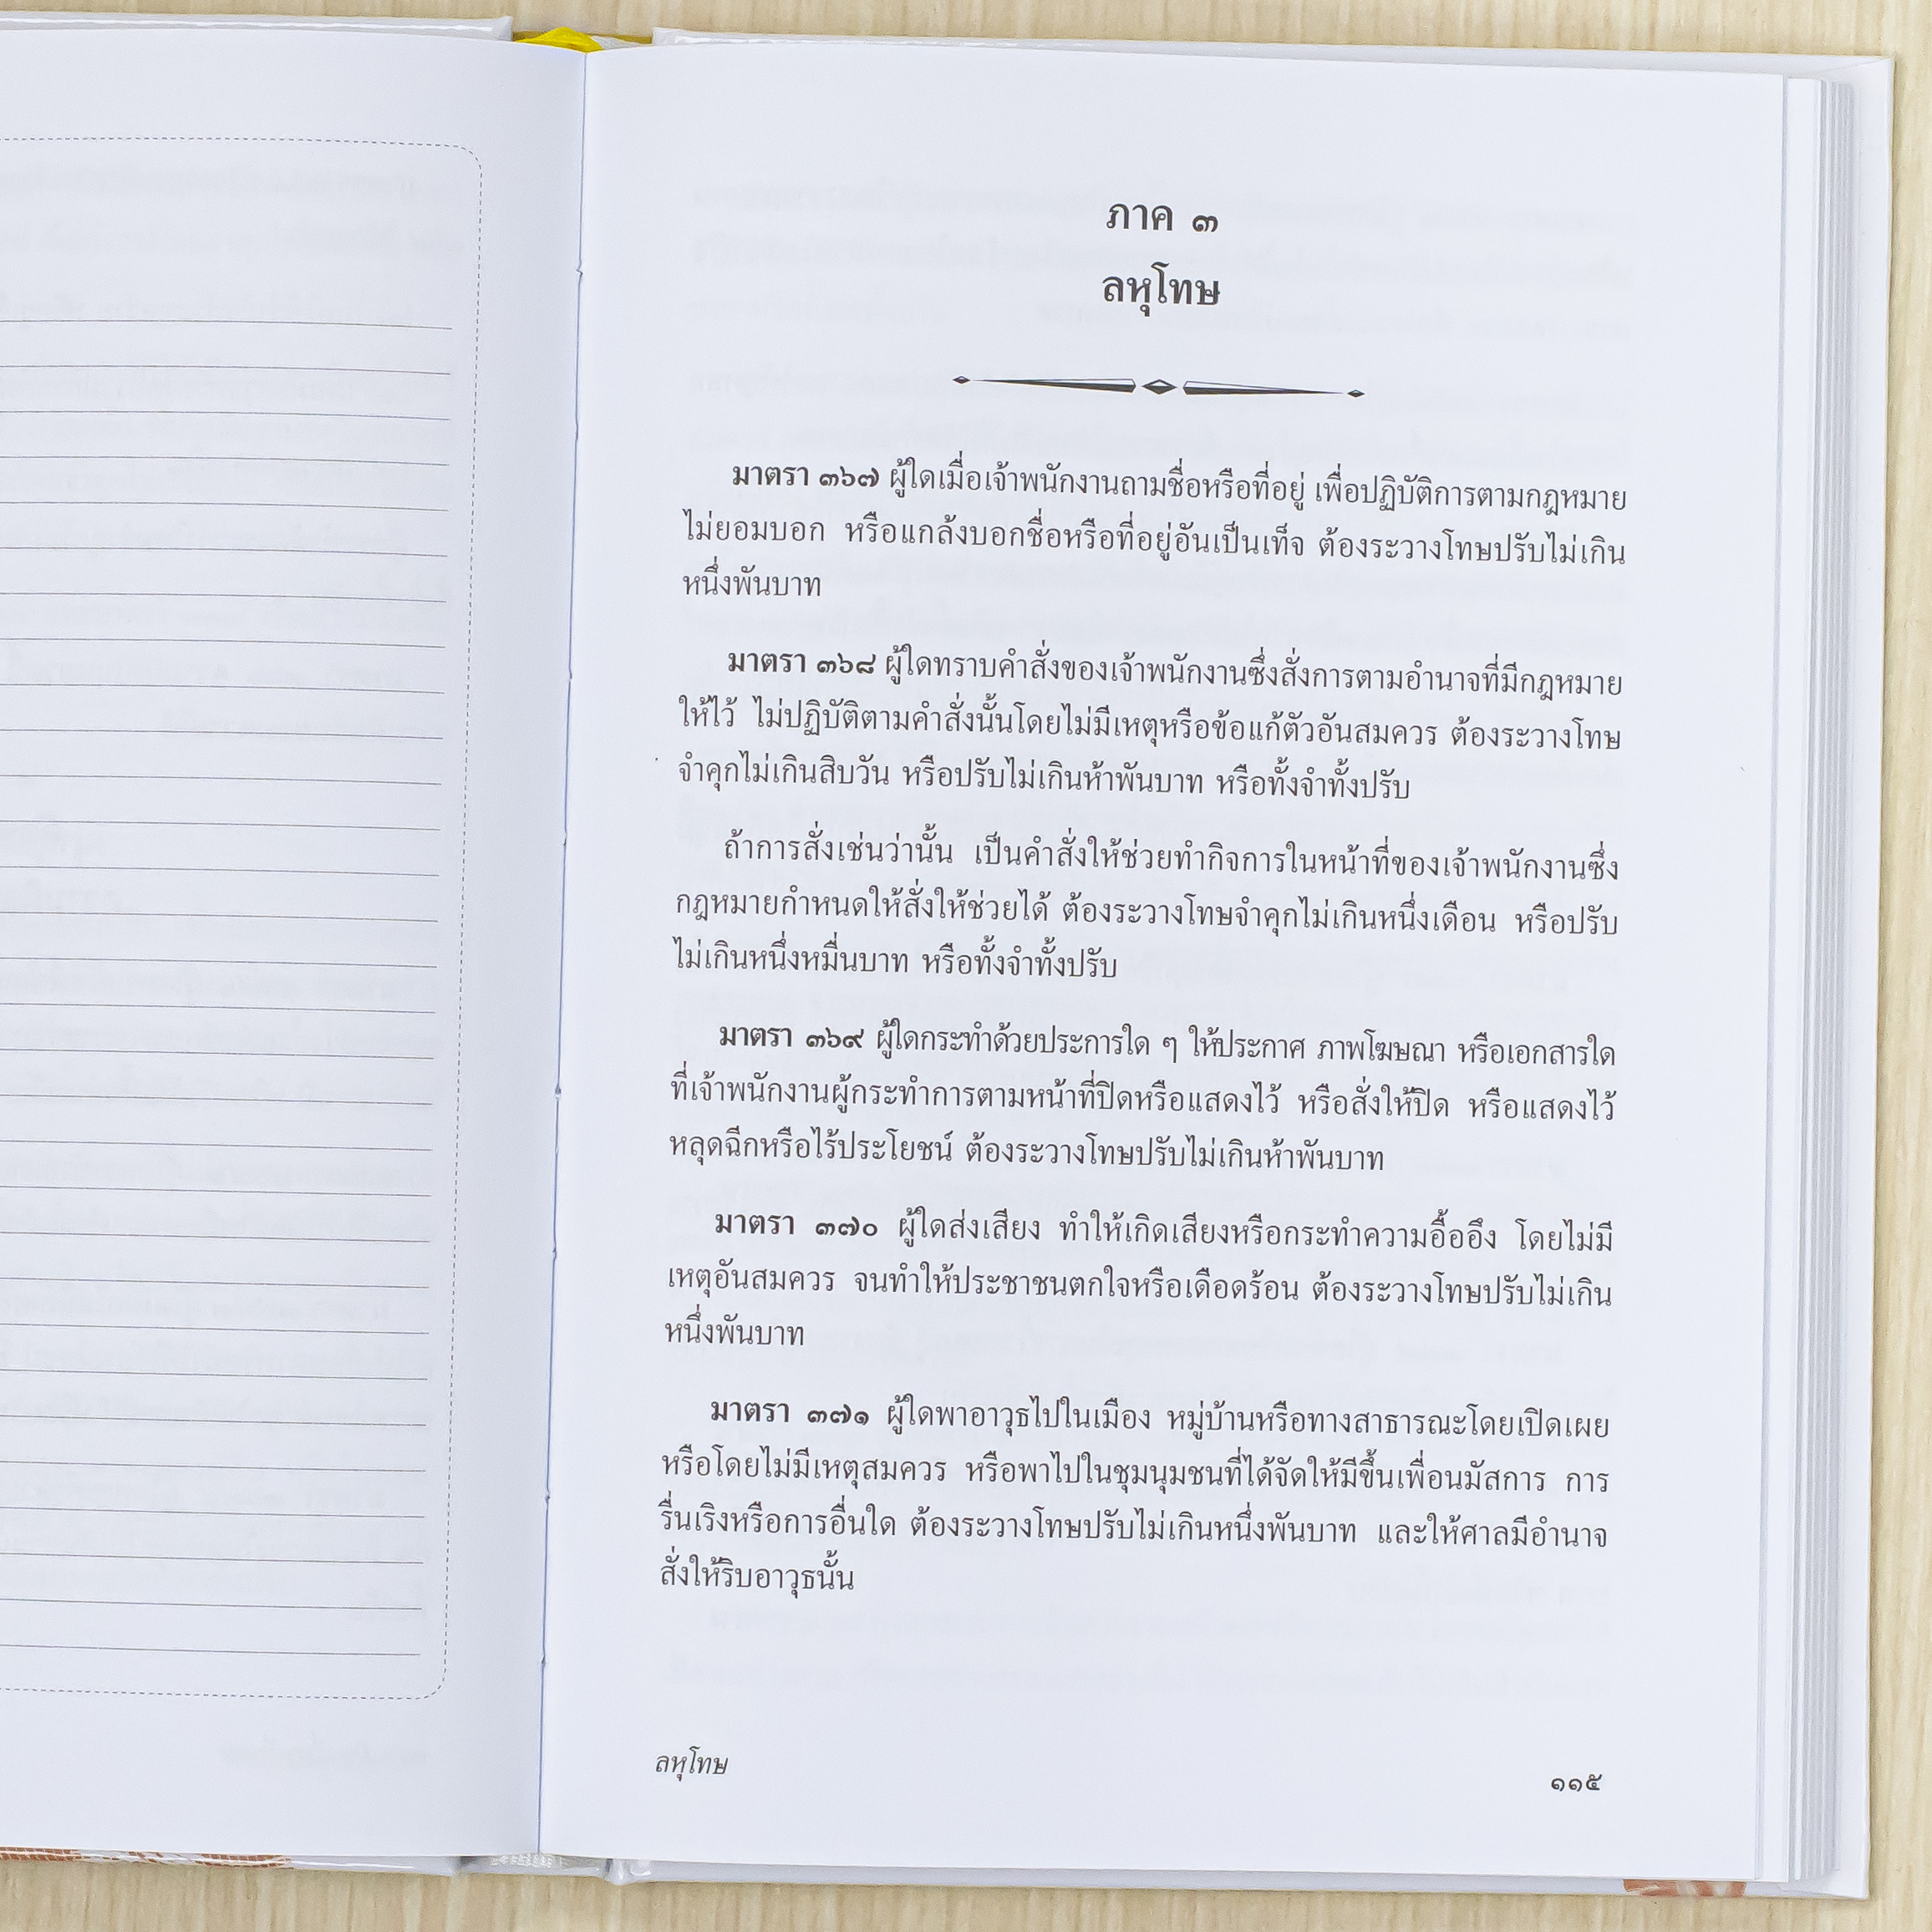 ภาค ๓
ลหุโทษ
มาตรา ๓๖๗ ผู้ใดเมื่อเจ้าพนักงานถามชื่อหรือที่อยู่ เพื่อปฏิบัติการตามกฎหมาย
ไม่ยอมบอก หรือแกล้งบอกชื่อหรือที่อยู่อันเป็นเท็จ ต้องระวางโทษปรับไม่เกิน
หนึ่งพันบาท
มาตรา ๓๖๘ ผู้ใดทราบคำสั่งของเจ้าพนักงานซึ่งสั่งการตามอำนาจที่มีกฎหมาย
ให้ไว้ ไม่ปฏิบัติตามคำสั่งนั้นโดยไม่มีเหตุหรือข้อแก้ตัวอันสมควร ต้องระวางโทษ
จำคุกไม่เกินสิบวัน หรือปรับไม่เกินห้าพันบาท หรือทั้งจำทั้งปรับ
ถ้าการสั่งเช่นว่านั้น เป็นคำสั่งให้ช่วยทำกิจการในหน้าที่ของเจ้าพนักงานซึ่ง
กฎหมายกำหนดให้สั่งให้ช่วยได้ ต้องระวางโทษจำคุกไม่เกินหนึ่งเดือน หรือปรับ
ไม่เกินหนึ่งหมื่นบาท หรือทั้งจำทั้งปรับ
มาตรา ๓๖๙ ผู้ใดกระทำด้วยประการใด ๆ ให้ประกาศ ภาพโฆษณา หรือเอกสารใด
ที่เจ้าพนักงานผู้กระทำการตามหน้าที่ปิดหรือแสดงไว้ หรือสั่งให้ปิด หรือแสดงไว้
หลุดฉีกหรือไร้ประโยชน์ ต้องระวางโทษปรับไม่เกินห้าพันบาท
มาตรา ๓๗๐ ผู้ใดส่งเสียง ทำให้เกิดเสียงหรือกระทำความอื้ออึง โดยไม่มี
เหตุอันสมควร จนทำให้ประชาชนตกใจหรือเดือดร้อน ต้องระวางโทษปรับไม่เกิน
หนึ่งพันบาท
มาตรา ๓๗๑ ผู้ใดพาอาวุธไปในเมือง หมู่บ้านหรือทางสาธารณะโดยเปิดเผย
หรือโดยไม่มีเหตุสมควร หรือพาไปในชุมนุมชนที่ได้จัดให้มีขึ้นเพื่อนมัสการ การ
รื่นเริงหรือการอื่นใด ต้องระวางโทษปรับไม่เกินหนึ่งพันบาท และให้ศาลมีอำนาจ
สั่งให้ริบอาวุธนั้น
ลหุโทษ
๑๑๕